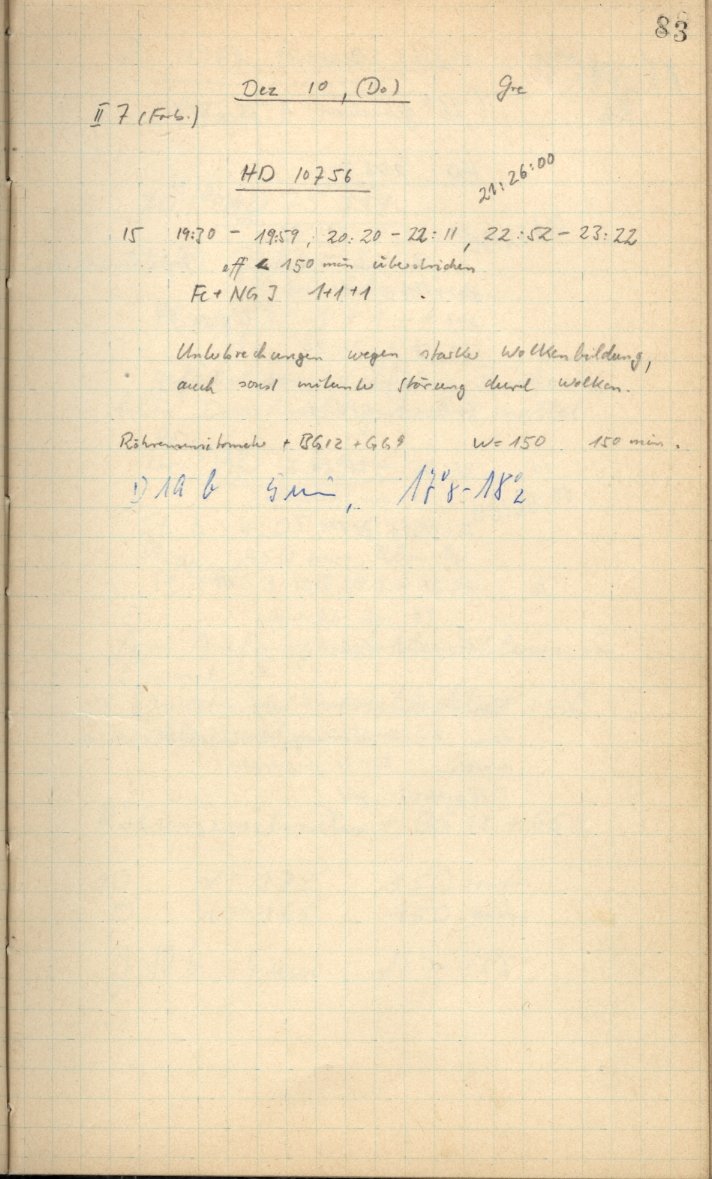 83
Dez 10, (Do) Gre
II 7 (Farb.)
HD 10756
21:26:00
15 19:30 - 19:59, 20:20 - 22:11, 22:52 - 23:22
eff 150 min überstrichen
Fe + NG 3 1+1+1
Unterbrechungen wegen starker Wolkenbildung,
auch sonst mitunter Störung durch Wolken.
+ BG12 + GG9 W = 150 150 min.
D 19 b 5 min, 17°8 - 18°2